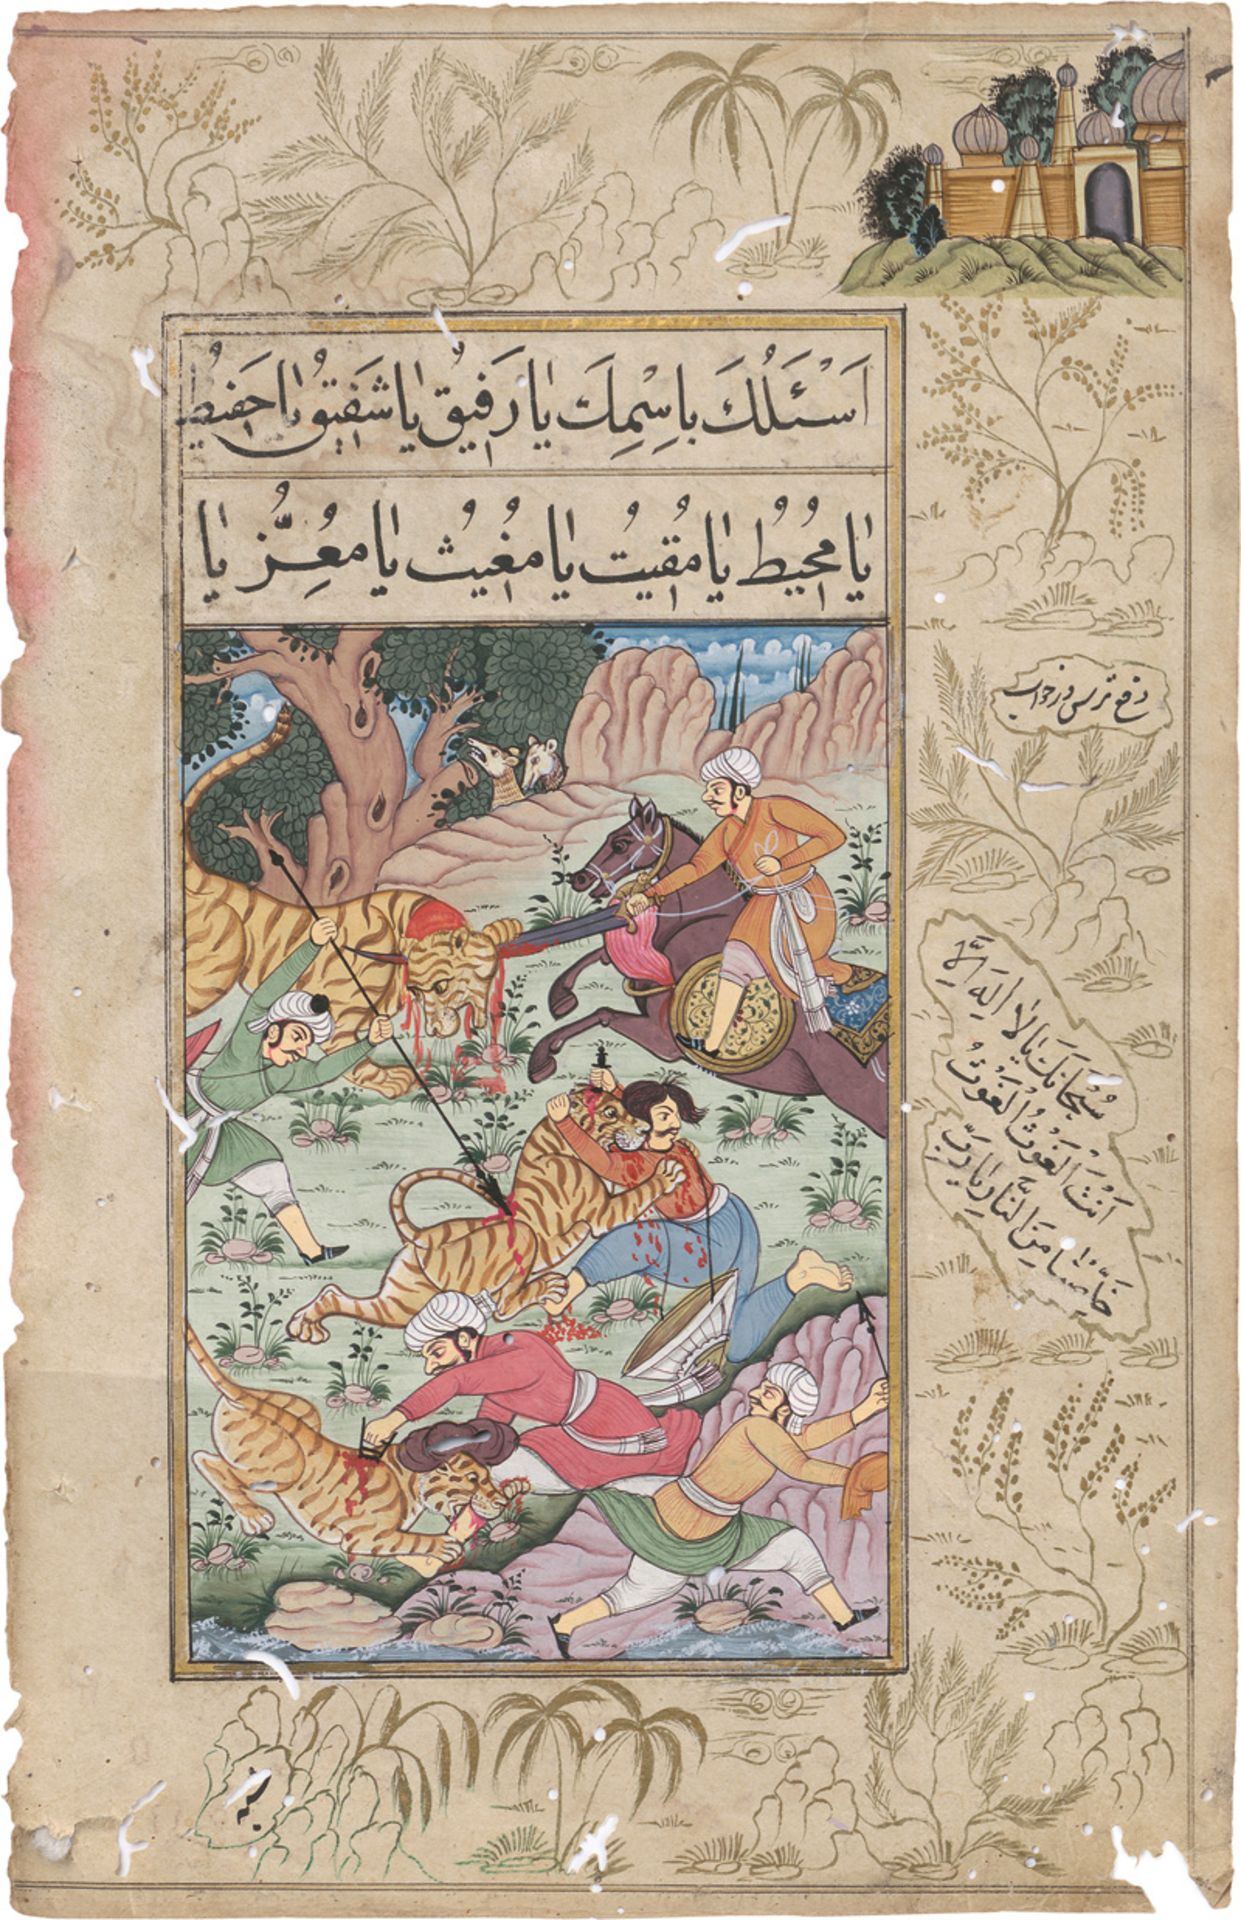 اَسْئَلُكَ بِاسْمِكَ يٰا رَفيقُ يٰا شَفيقُ يٰا حَفيظُ
يٰا مُحيطُ يٰا مُقيتُ يٰا مُغيثُ يٰا مُعِزُّ يٰا
دفع ترس در خواب
سُبْحانَكَ يٰا لٰا اِلٰهَ اِلّٰا
اَنْتَ الْغَوْثُ الْغَوْثُ
خَلِّصْنٰا مِنَ النّٰارِ يٰا رَبِّ